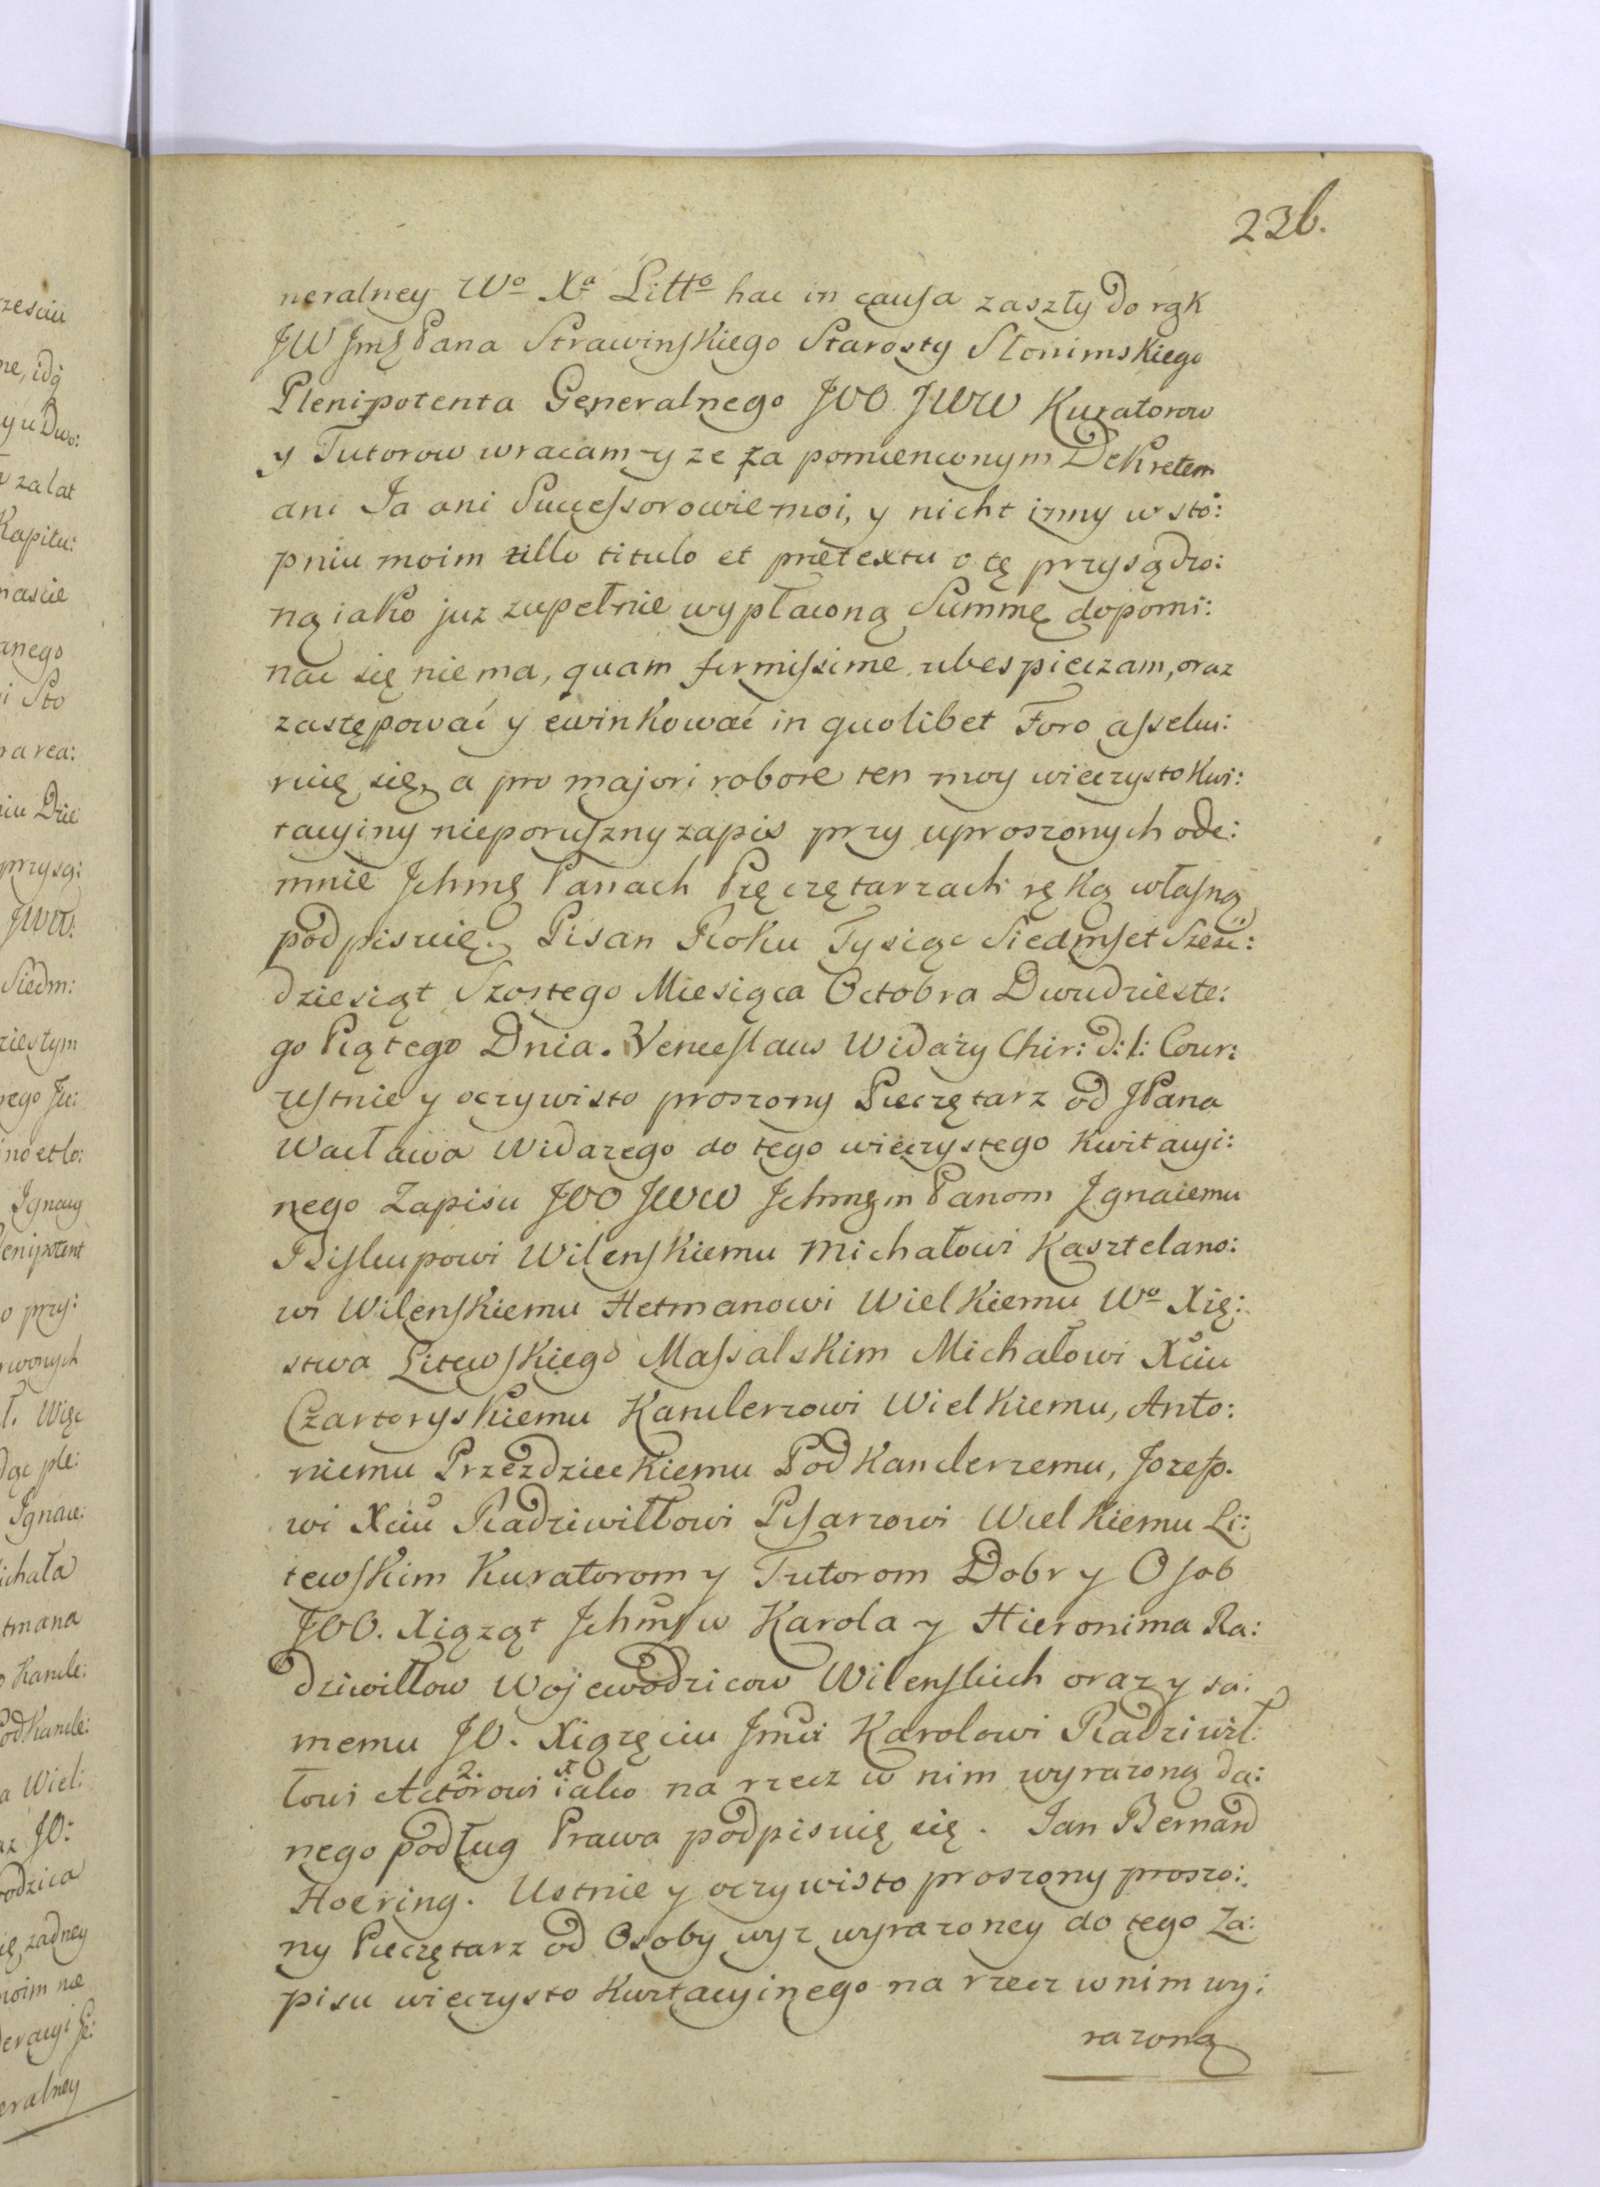 236.
neralney Wo Xa Litto hac in causa zaszły do rąk
JW Jmę Pana Strawinskiego Starosty Słonimskiego
Plenipotenta Generalnego JOO JWW Kuratorow
y Tutorow wracam y ze za pomienionym Dekretem
ani Ja ani Successorowie moi, y nicht inny w sto:
pniu moim ullo titulo et prætextu o tę przysądzo:
ną iako juz zupełnie wypłaconą Summę dopomi:
nac się nie ma, quam firmissime ubespieczam, oraz
zastępować y ewinkować in quolibet Foro asseku:
ruię się, a pro majori robore ten moy wieczysto Kwi:
tacyiny nieporuszny zapis przy uproszonych ode:
mnie Jchmę Panach Pięczętarzach ręką własną
podpisuię. Pisan Roku Tysiąc Siedmset Sześć:
dziesiąt Szostego Miesiąca Octobra Dwudzieste:
go Piątego Dnia. Venceslaus Widaży Chir: d: l: Cour:
Ustnie y oczywisto proszony Pieczętarz od JPana
Wacława Widazego do tego wieczystego Kwitacyi:
nego Zapisu JOO JWW Jchmęm Panom Jgnacemu
Biskupowi Wilenskiemu Michałowi Kasztelano:
wi Wilenskiemu Hetmanowi Wielkiemu Wo Xię:
stwa Litewskiego Massalskim Michałowi Xciu
Czartoryskiemu Kanclerzowi Wielkiemu, Anto:
niemu Przezdzieckiemu PodKanclerzemu, Jozefo.
wi Xciu Radziwiłłowi Pisarzowi Wielkiemu Li:
tewskim Kuratorom y Tutorom Dobr y Osob
JOO. Xiąząt Jchmsw Karola y Hieronima Ra:
dziwiłłow Wojewodzicow Wilenskich oraz y sa:
memu JO. Xiąręciu Jmći Karolowi Radziwił:
łowi Actorowi iako na rzecz w nim wyrazoną da:
nego podług Prawa podpisuię się. Jan Bernard
Hoering. Ustnie y oczywisto proszony proszo:
ny Pieczętarz od Osoby wyz wyrazoney do tego Za:
pisu wieczysto Kwitacyinego na rzecz w nim wy:
razoną